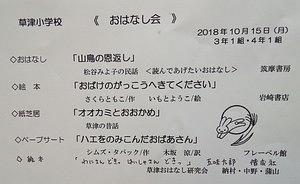 草津小学校 《 おはなし会 》
2018年10月15(月)
3年1組・4年1組
◇おはなし 「山鳥の恩返し」
松谷みよ子の民話 <読んであげたいおはなし> 筑摩書房
◇絵 本 「おばけのがっこうへきてください」
さくらともこ/作 いもとようこ/絵 岩崎書店
◇紙芝居 「オオカミとおおかめ」
草津の昔話
◇ペープサート 「ハエをのみこんだおばあさん」
シムズ・タバック/作 木坂 涼/訳 フレーベル館
◇絵本 「わにさんどきっ はいしゃさんどきっ」 五味太郎 偕成社
草津おはなし研究会 納村・中野・蒲山